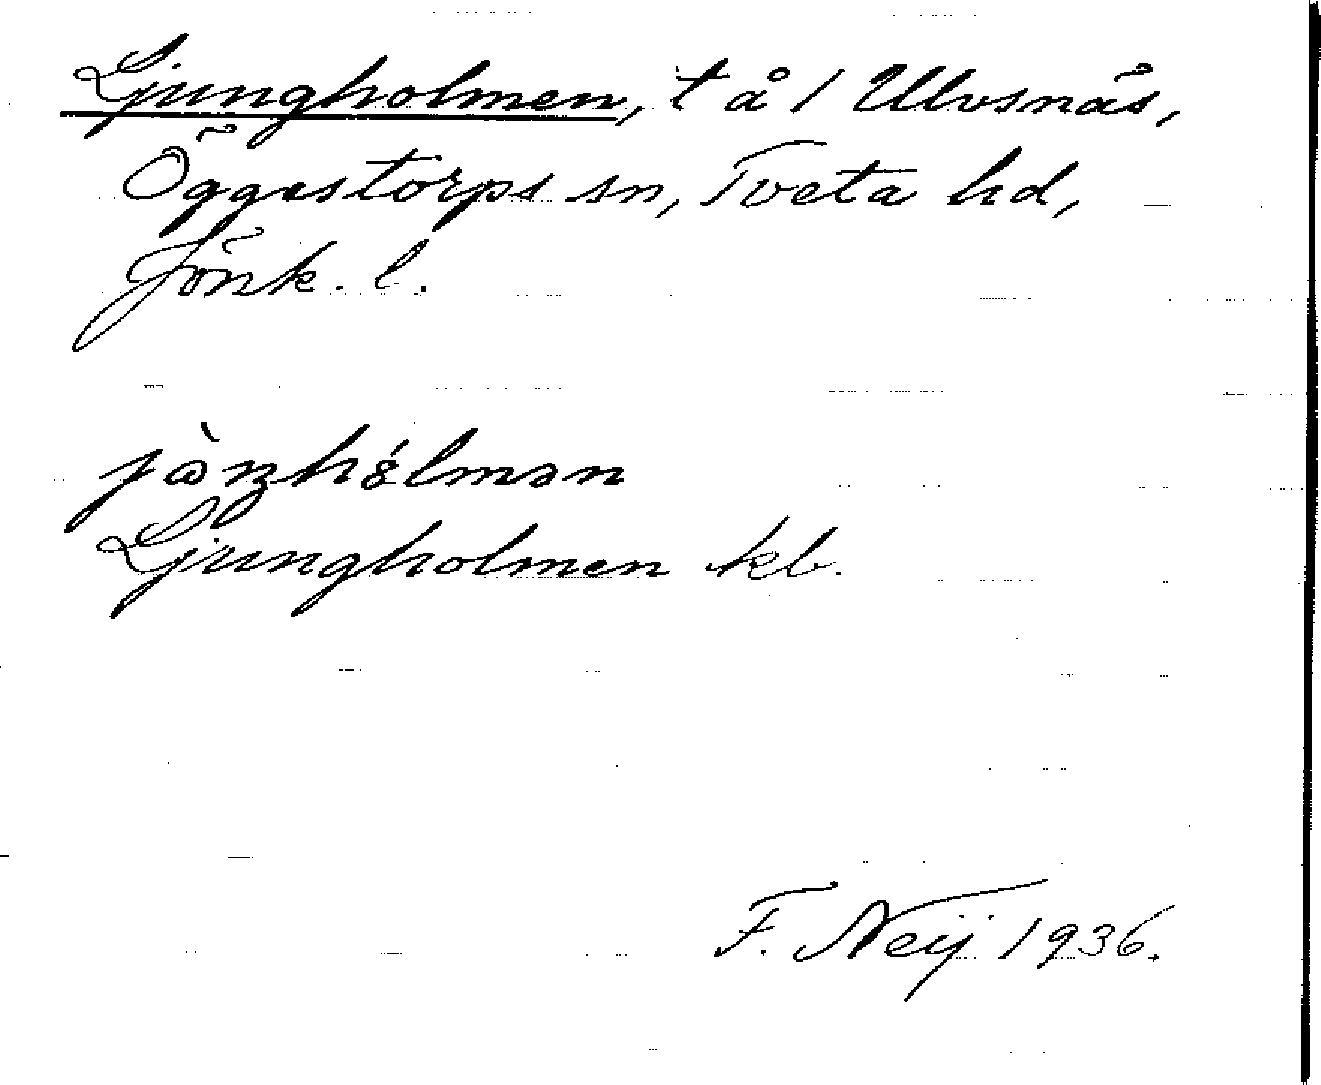 Ljungholmen, t å 1 Ulvsnäs,
Öggestorps sn, Tveta hd,
Jönk. l.
Ljungholmen kb.
F. Neij 1936.